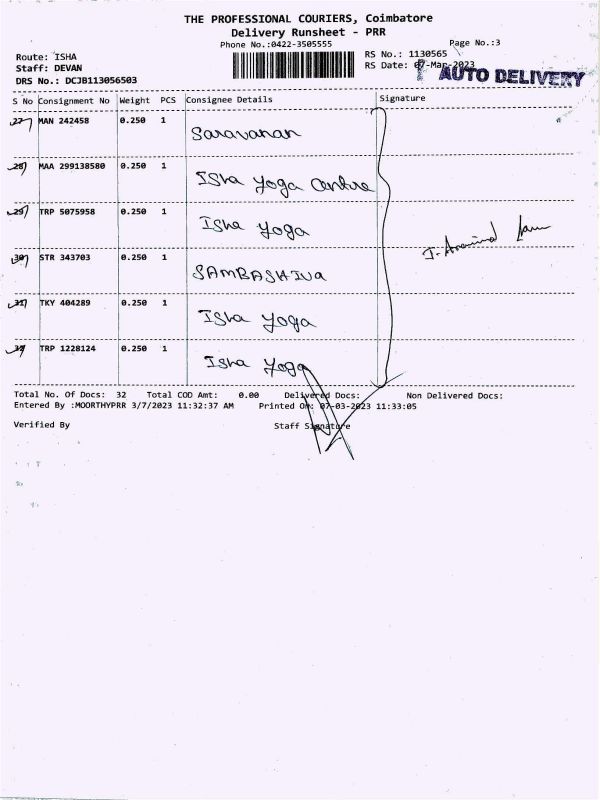 THE PROFESSIONAL COURIERS, Coimbatore
Delivery Runsheet - PRR
Phone No.:0422-3505555
Page No.:3
Route: ISHA
RS No.: 1130565
Staff: DEVAN
RS Date: 07-Mar-2023
AUTO DELIVERY
DRS No.: DCJB113056503
S No Consignment No Weight PCS Consignee Details Signature
27 MAN 242458 0.250 1 Saravanan
28 MAA 299138580 0.250 1 Isha Yoga Centre
29 TRP 5075958 0.250 1 Isha Yoga
30 STR 343703 0.250 1 SAMBASHIVA
31 TKY 404289 0.250 1 Isha Yoga
32 TRP 1228124 0.250 1 Isha Yoga
Total No. Of Docs: 32 Total COD Amt: 0.00 Delivered Docs: Non Delivered Docs:
Entered By :MOORTHYPRR 3/7/2023 11:32:37 AM Printed On: 07-03-2023 11:33:05
Verified By Staff Signature